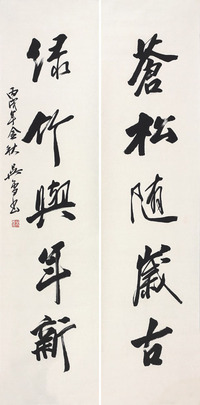 蒼松随歲古
绿竹與年新
丙戌年金秋